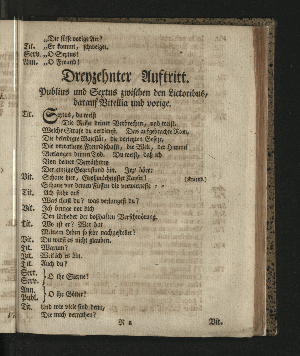 „Die süsse vorige Art?
Tit. „Er kommt, schweiget.
Serv. „O Sextus!
Ann. „O Freund!
Dreyzehnter Auftritt.
Publius und Sextus zwischen den Lictoribus,
darauf Vitellia und vorige.
Tit. Sextus, du weist
Die Reihe deiner Verbrechen, und weist,
Welche Strafe du verdienst. Das aufgebrachte Rom,
Die beleidigte Majestät, die verletzten Gesetze,
Die verrathene Freundschafft, die Welt, der Himmel
Verlangen deinen Tod. Du weist, daß ich
Von deiner Verrätherey
Der einzige Gegenstand bin. Jetzt höre:
Vit. Schaue hier, Großmüthigster Kayser!
Schaue vor deinen Füssen die verwirrteste
Tit. Ach stehe auf
Was thust du? was verlangest du?
Vit. Ich bringe vor dich
Den Urheber der boßhafften Verschwörung.
Tit. Wo ist er? Wer hat
Meinem Leben so sehr nachgestellet?
Vit. Du wirst es nicht glauben.
Tit. Warum?
Vit. Weil ich es bin.
Tit. Auch du?
Sext.
Serv. O ihr Sterne!
Ann.
Publ. O ihr Götter!
Tit. Und wie viele sind dann,
Die mich verrathen?
Vit.